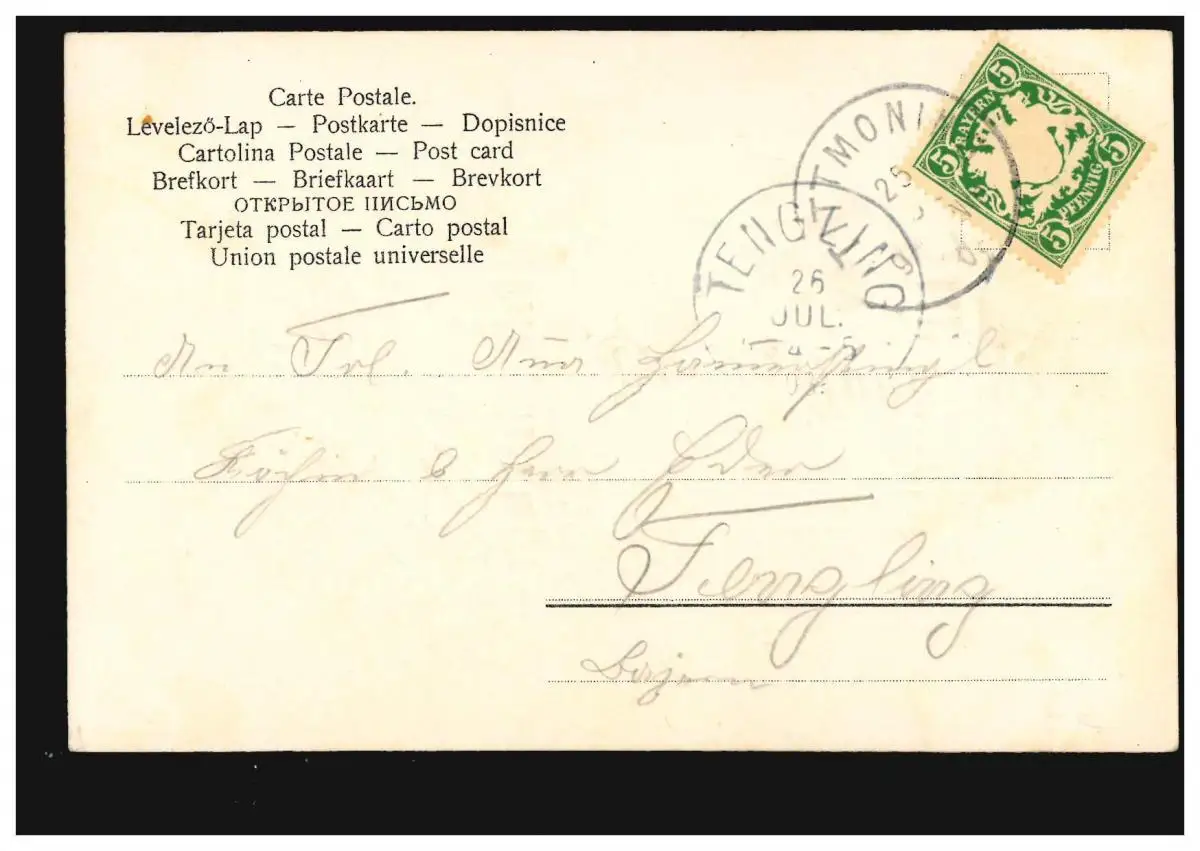 Carte Postale.
Levelező-Lap — Postkarte — Dopisnice
Cartolina Postale — Post card
Brefkort — Briefkaart — Brevkort
ОТКРЫТОЕ ПИСЬМО
Tarjeta postal — Carto postal
Union postale universelle
5 5 5 5
BAYERN
PFENNIG
TMONI
25
TENGLING
26
JUL.
An Frl.
Köchin b Herrn Eder
Tengling
Bayern